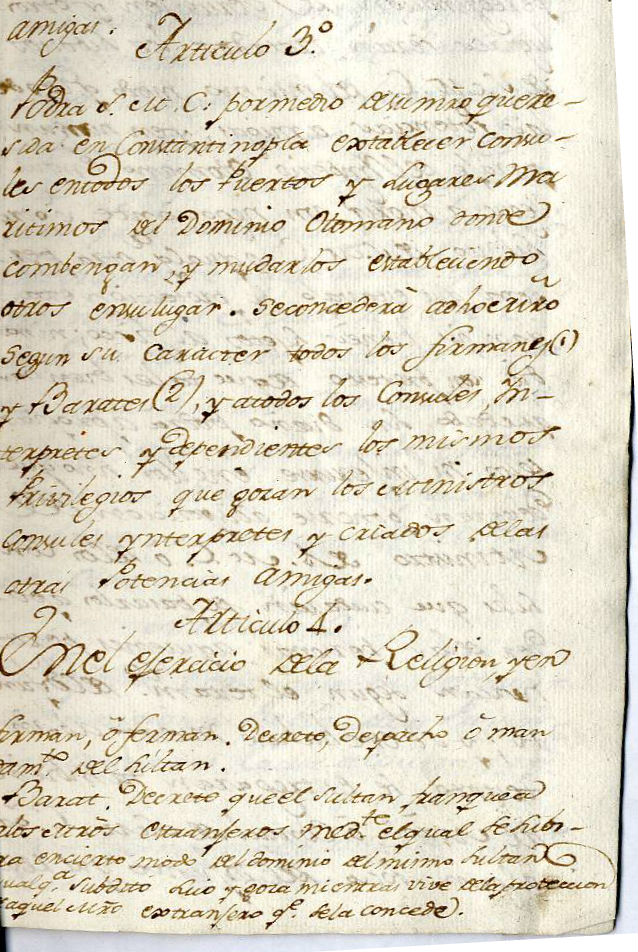 amigas.
Articulo 3.º
Podra S. M. C. pormedio desumrõ quere-
sida en Constantinopla extablecer Consu-
les entodos los Puertos y Lugares Ma
ritimos del Dominio Otomano donde
combengan, y mudarlos estableciendo
otros ensulugar. Seconcederà adho
segun su caracter todos los firmanes (1)
y Barates (2), y atodos los Consules, In-
terpretes y dependientes los mismos
Privilegios que gozan los Ministros
Consules ynterpretes y criados delas
otras Potencias amigas.
Articulo 4.
Enel ejercicio dela Religion, yen
firman, õ ferman. Decreto, Despacho õ man
dam.to del Sultan.
Barat. Decreto queel Sultan franquea
alos Mrõs extranjeros med.te elqual se libr-
ra encierto modo deldominio delmismo Sultan
qualq.a subdito suio y goza mientras vive dela proteccion
deaquel Mrõ extranjero q.e sela concede).